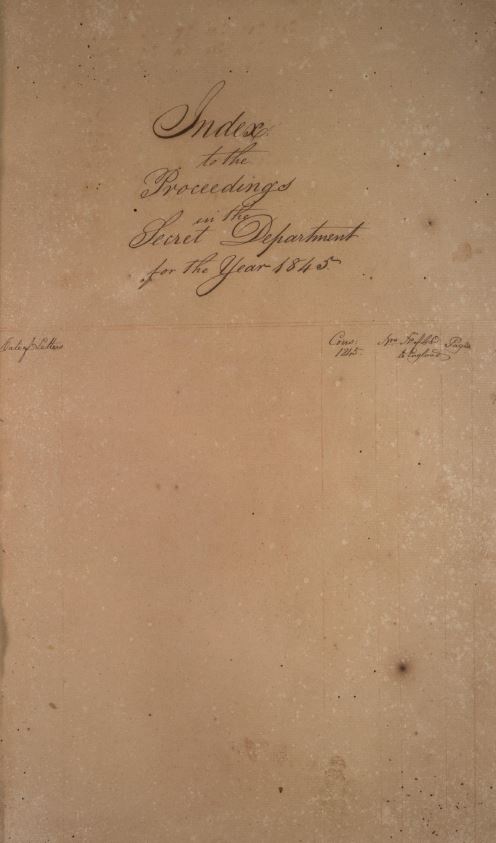 Index
to the
Proceedings
in the
Secret Department
for the Year 1845
Date of Letters
Cons: Nos. Page
1845. to England